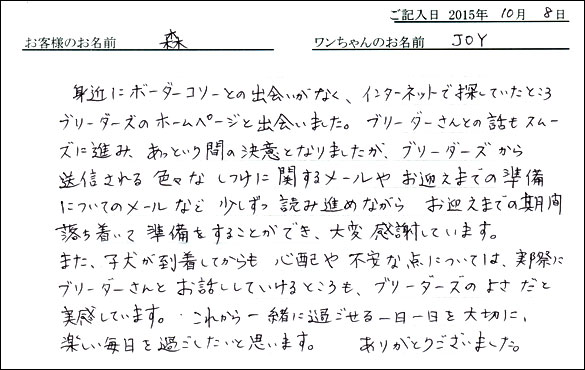 ご記入日 2015年 10月 8日
お客様のお名前 森 ワンちゃんのお名前 JOY
身近にボーダーコリーとの出会いがなく、インターネットで探していたところ
ブリーダーズのホームページと出会いました。ブリーダーさんとの話もスムー
ズに進み、あっという間の決意となりましたが、ブリーダーズから
送信される色々なしつけに関するメールやお迎えまでの準備
についてのメールなど少しずつ読み進めながらお迎えまでの期間
落ち着いて準備をすることができ、大変感謝しています。
また、子犬が到着してからも心配や不安な点については、実際に
ブリーダーさんとお話ししていけるところも、ブリーダーズのよさだと
実感しています。これから一緒に過ごせる一日一日を大切に、
楽しい毎日を過ごしたいと思います。 ありがとうございました。